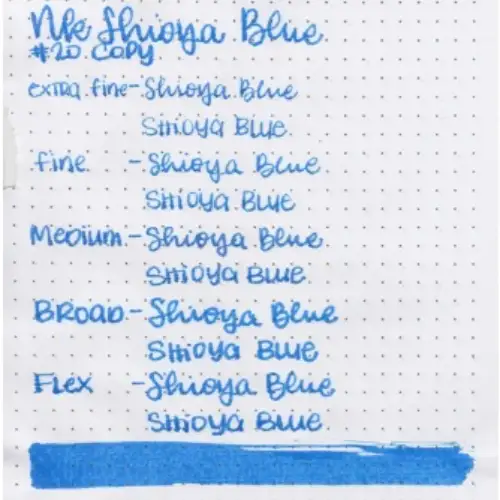 NK Shioya Blue
#20 Copy
extra fine - Shioya Blue
Shioya Blue
fine - Shioya Blue
Shioya Blue
Medium - Shioya Blue
Shioya Blue
Broad - Shioya Blue
Shioya Blue
Flex - Shioya Blue
Shioya Blue